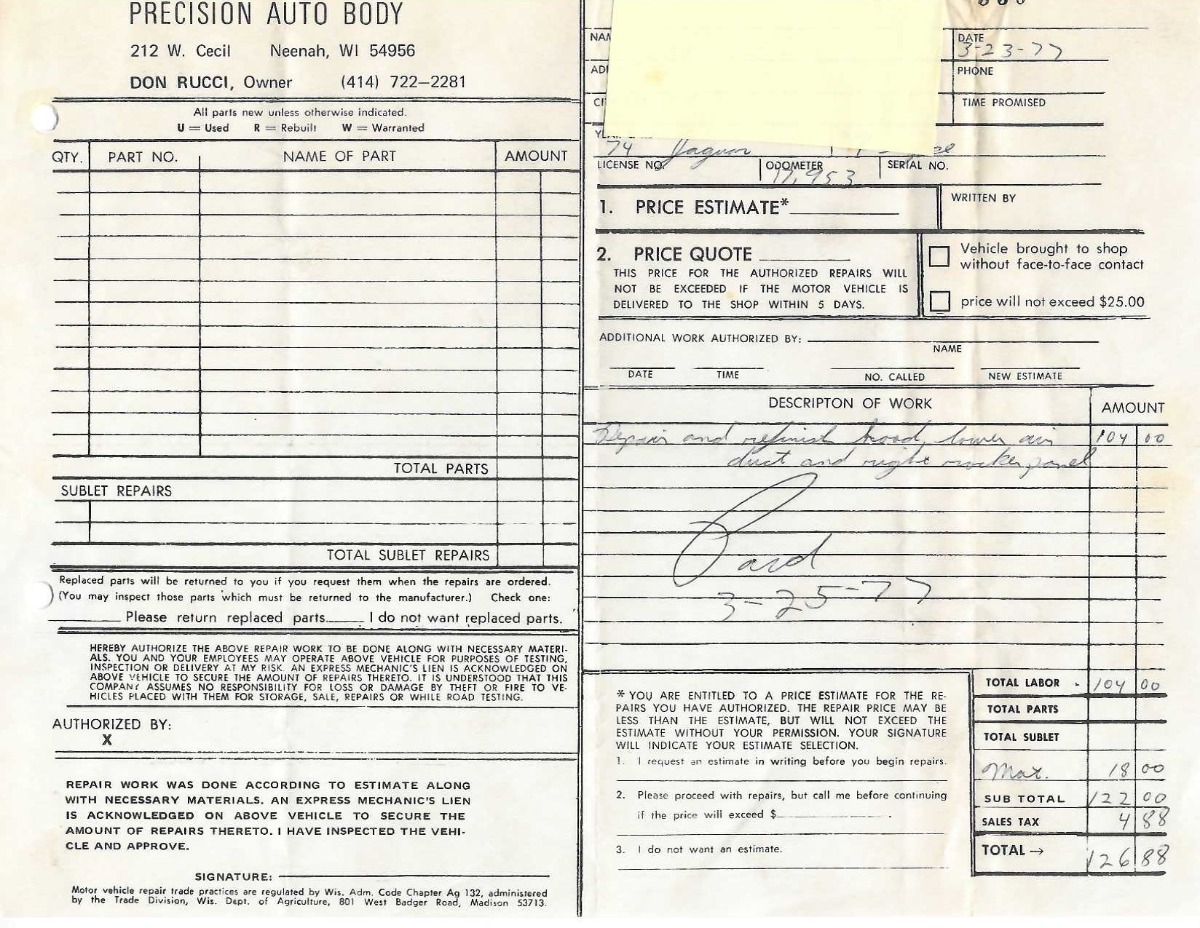 PRECISION AUTO BODY
212 W. Cecil Neenah, WI 54956
DON RUCCI, Owner (414) 722-2281
All parts new unless otherwise indicated.
U = Used R = Rebuilt W = Warranted
QTY. PART NO. NAME OF PART AMOUNT
TOTAL PARTS
SUBLET REPAIRS
TOTAL SUBLET REPAIRS
Replaced parts will be returned to you if you request them when the repairs are ordered.
(You may inspect those parts which must be returned to the manufacturer.) Check one:
Please return replaced parts. I do not want replaced parts.
HEREBY AUTHORIZE THE ABOVE REPAIR WORK TO BE DONE ALONG WITH NECESSARY MATERI-
ALS. YOU AND YOUR EMPLOYEES MAY OPERATE ABOVE VEHICLE FOR PURPOSES OF TESTING,
INSPECTION OR DELIVERY AT MY RISK. AN EXPRESS MECHANIC'S LIEN IS ACKNOWLEDGED ON
ABOVE VEHICLE TO SECURE THE AMOUNT OF REPAIRS THERETO. IT IS UNDERSTOOD THAT THIS
COMPANY ASSUMES NO RESPONSIBILITY FOR LOSS OR DAMAGE BY THEFT OR FIRE TO VE-
HICLES PLACED WITH THEM FOR STORAGE, SALE, REPAIRS OR WHILE ROAD TESTING.
AUTHORIZED BY:
X
REPAIR WORK WAS DONE ACCORDING TO ESTIMATE ALONG
WITH NECESSARY MATERIALS. AN EXPRESS MECHANIC'S LIEN
IS ACKNOWLEDGED ON ABOVE VEHICLE TO SECURE THE
AMOUNT OF REPAIRS THERETO. I HAVE INSPECTED THE VEHI-
CLE AND APPROVE.
SIGNATURE:
Motor vehicle repair trade practices are regulated by Wis. Adm. Code Chapter Ag 132, administered
by the Trade Division, Wis. Dept. of Agriculture, 801 West Badger Road, Madison 53713.
DATE
3-23-77
PHONE
TIME PROMISED
74 Jaguar
LICENSE NO. ODOMETER SERIAL NO.
17,953
1. PRICE ESTIMATE*
WRITTEN BY
2. PRICE QUOTE
THIS PRICE FOR THE AUTHORIZED REPAIRS WILL
NOT BE EXCEEDED IF THE MOTOR VEHICLE IS
DELIVERED TO THE SHOP WITHIN 5 DAYS.
Vehicle brought to shop
without face-to-face contact
price will not exceed $25.00
ADDITIONAL WORK AUTHORIZED BY:
NAME
DATE TIME NO. CALLED NEW ESTIMATE
DESCRIPTON OF WORK AMOUNT
Repair and refinish hood, lower air 104 00
duct and right rocker panel
Paid
3-25-77
* YOU ARE ENTITLED TO A PRICE ESTIMATE FOR THE RE-
PAIRS YOU HAVE AUTHORIZED. THE REPAIR PRICE MAY BE
LESS THAN THE ESTIMATE, BUT WILL NOT EXCEED THE
ESTIMATE WITHOUT YOUR PERMISSION. YOUR SIGNATURE
WILL INDICATE YOUR ESTIMATE SELECTION.
1. I request an estimate in writing before you begin repairs.
2. Please proceed with repairs, but call me before continuing
if the price will exceed $
3. I do not want an estimate.
TOTAL LABOR 104 00
TOTAL PARTS
TOTAL SUBLET
Mat. 18 00
SUB TOTAL 122 00
SALES TAX 4 88
TOTAL → 126 88